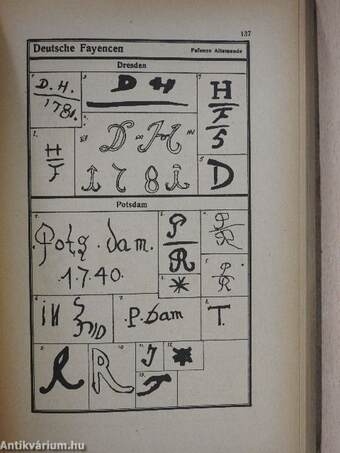 137
Deutsche Fayencen Faïence Allemande
Dresden
D. H.
1781.
D H
H
F
S
H
F
D·H
1781
D
Potsdam
Potz dam.
1.7.40.
P
R
P
R
P
R
.P.Dam
T.
R
Antikvárium.hu
Antikvarium.hu